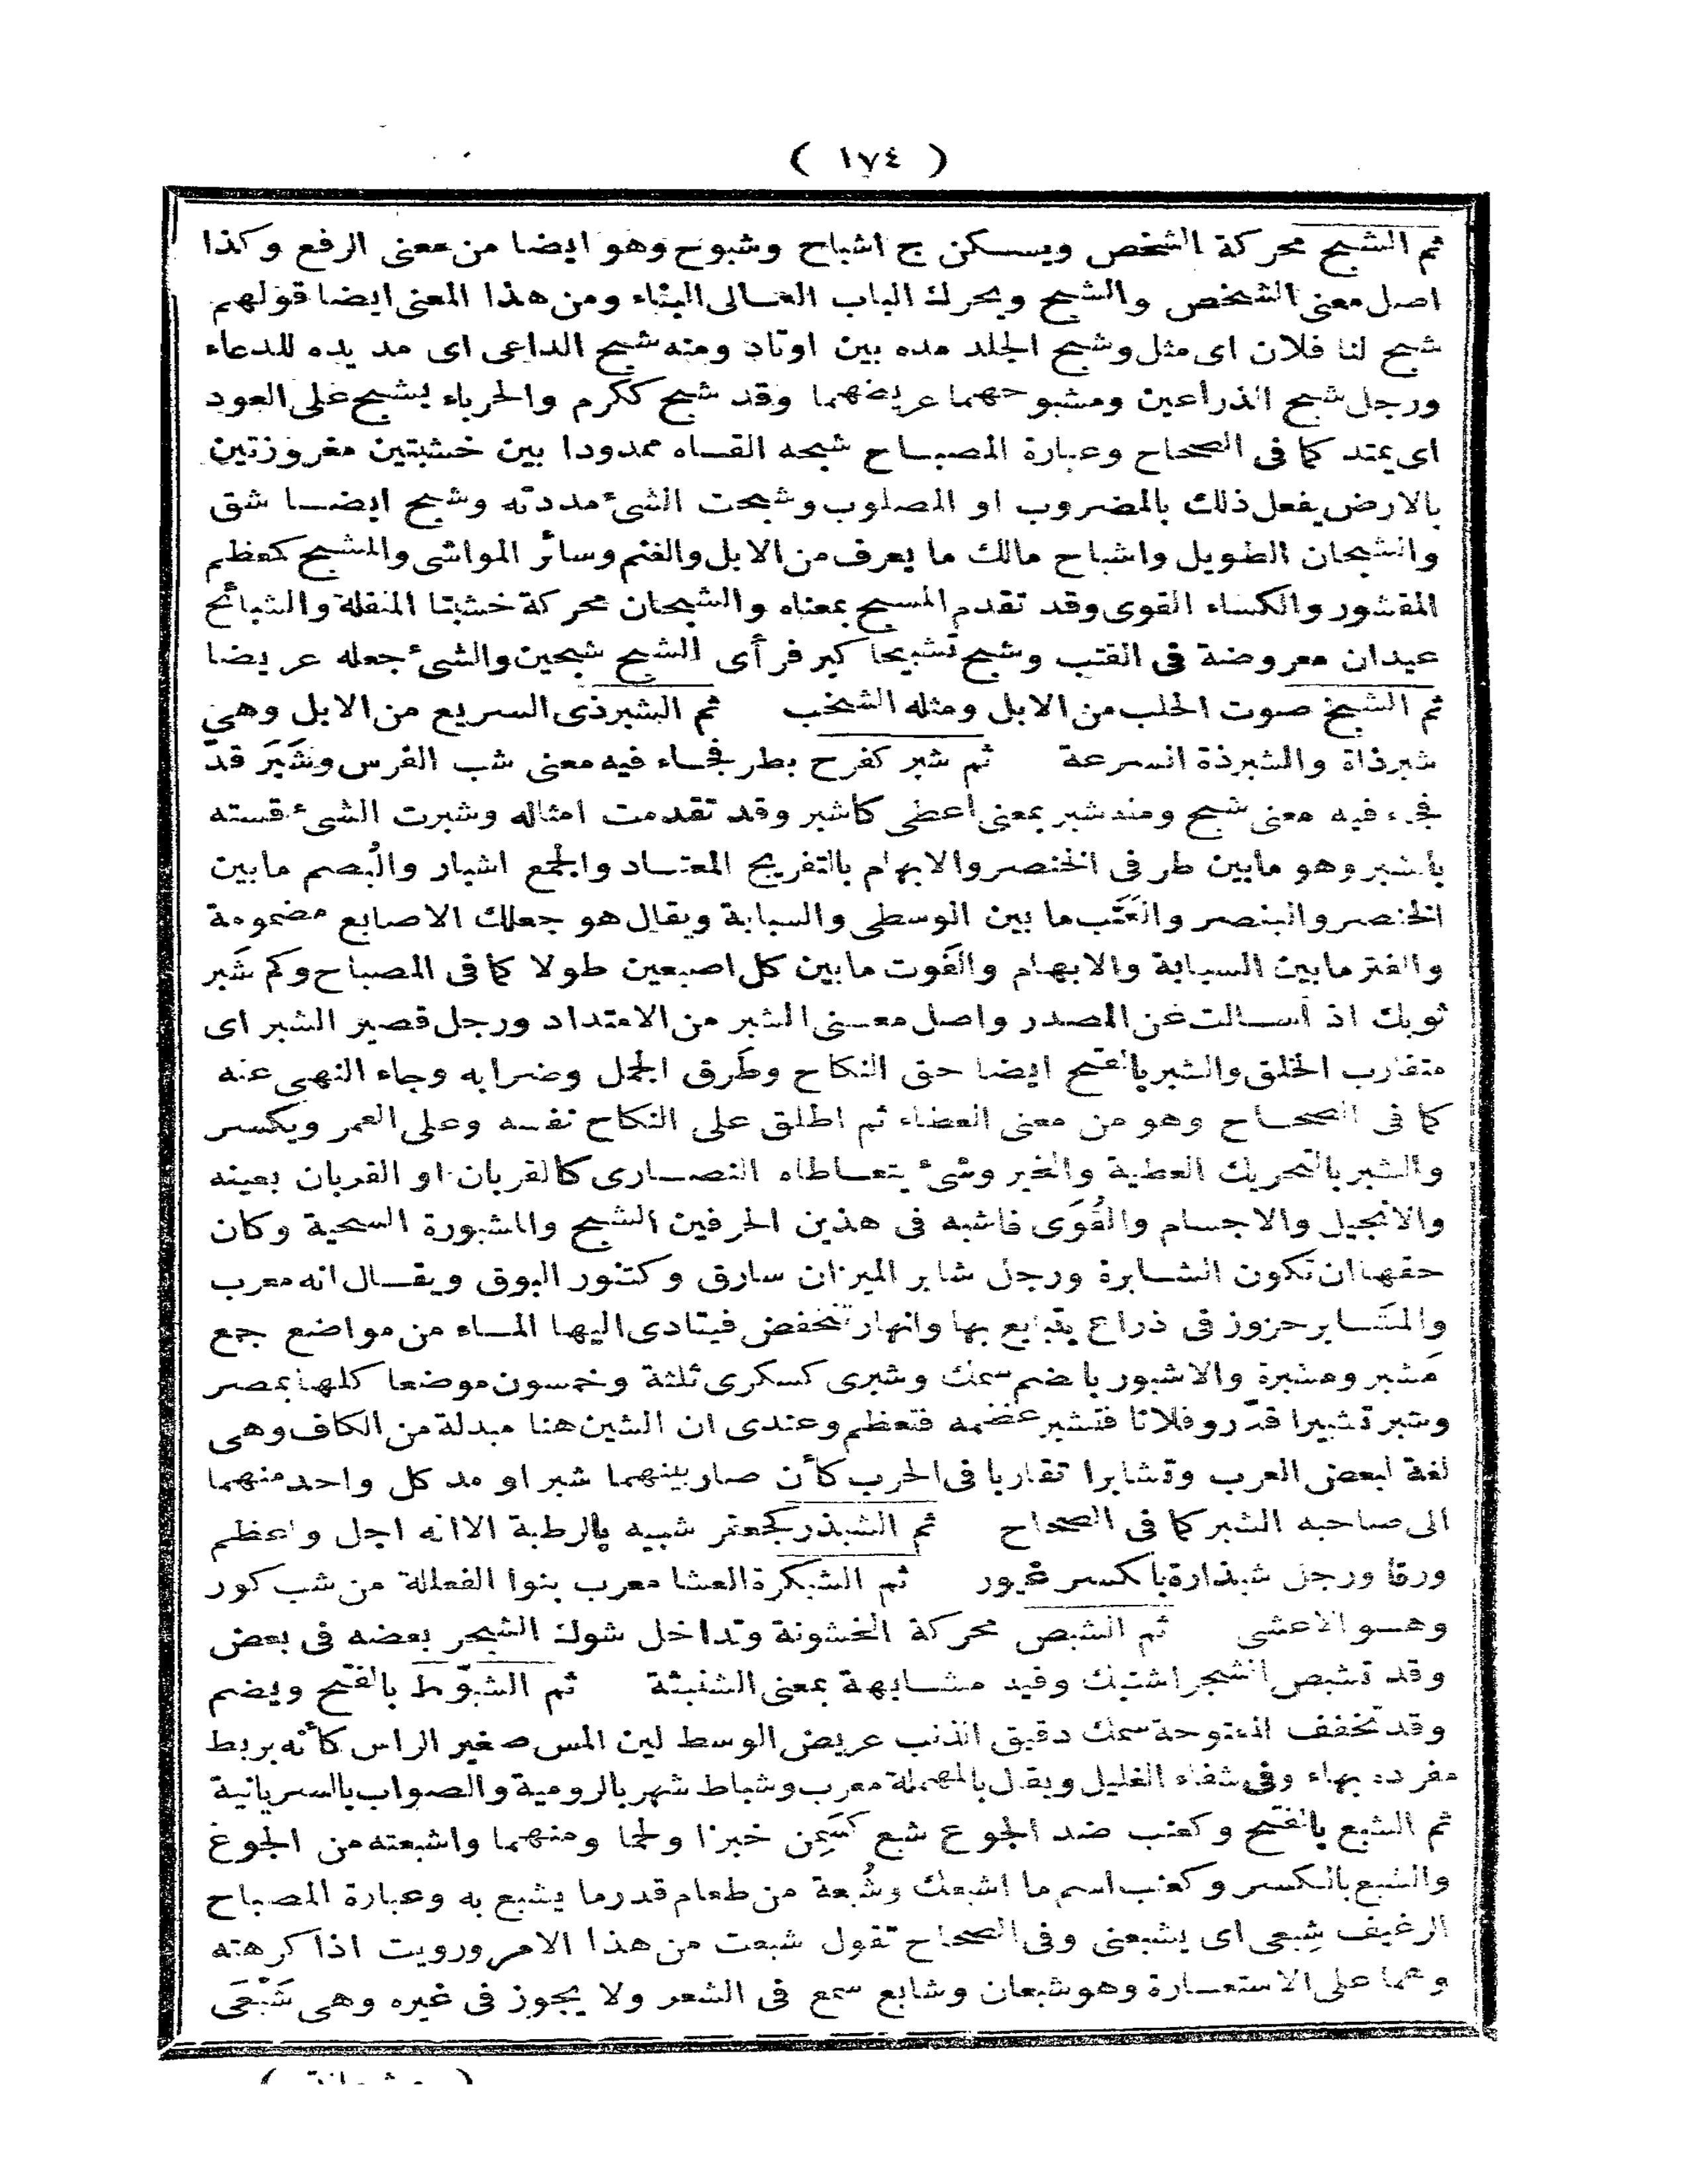 ( ١٧٤ )
ثم الشبح محركة الشخص ويسكن ج اشباح وشبوح وهو ايضا من معنى الرفع وكذا
اصل معنى الشخص والشبح ويحرك الباب العالى البناء ومن هذا المعنى ايضا قولهم
شبح لنا فلان اى مثل وشبح الجلد مده بين اوتاد ومنه شبح الداعى اى مد يده للدعاء
ورجل شبح الذراعين ومشبوحهما عريضهما وقد شبح ككرم والحرباء يشبح على العود
اى يمتد كما فى الصحاح وعبارة المصباح شبحه القاه ممدودا بين خشبتين مغروزتين
بالارض يفعل ذلك بالمضروب او المصلوب وشبحت الشئ مددته وشبح ايضا شق
والشبحان الطويل واشباح مالك ما يعرف من الابل والغنم وسائر المواشى والمشبح كمعظم
المقشور والكساء القوى وقد تقدم المسبح بمعناه والشبحان محركة خشبتا المنقلة والشبائح
عيدان معروضة فى القتب وشبح تشبيحا كبر فرأى الشبح شبحين والشئ جعله عريضا
ثم الشبخ صوت الحلب من الابل ومثله الشخب ثم الشبرذى السريع من الابل وهى
شبرذاة والشبرذة السرعة ثم شبر كفرح بطر فجاء فيه معنى شب الفرس وشَبَرَ قدّ
فجاء فيه معنى شبح ومنه شبر بمعنى اعطى كاشبر وقد تقدمت امثاله وشبرت الشئ قسته
بالشبر وهو مابين طرفى الخنصر والابهام بالتفريج المعتاد والجمع اشبار والبُصم مابين
الخنصر والبنصر والعَتَب ما بين الوسطى والسبابة ويقال هو جعلك الاصابع مضمومة
والفتر مابين السبابة والابهام والفَوت مابين كل اصبعين طولا كما فى المصباح وكم شَبر
ثوبك اذ أسالت عن المصدر واصل معنى الشبر من الامتداد ورجل قصير الشبر اى
متقارب الخلق والشبر بالفتح ايضا حق النكاح وطَرق الجمل وضرابه وجاء النهى عنه
كما فى الصحاح وهو من معنى العطاء ثم اطلق على النكاح نفسه وعلى العمر ويكسر
والشبر بالتحريك العطية والخير وشئ يتعاطاه النصارى كالقربان او القربان بعينه
والانجيل والاجسام والقُوَى فاشبه فى هذين الحرفين الشبح والمشبورة السخية وكان
حقها ان تكون الشابرة ورجل شابر الميزان سارق وكتنور البوق ويقال انه معرب
والمَشابر حزوز فى ذراع يتبايع بها وانهار تنخفض فيتادى اليها الماء من مواضع جمع
مَشبر ومشبرة والاشبور بالضم سمك وشبرى كسكرى ثلثة وخمسون موضعا كلها بمصر
وشبر تشبيرا قدّر وفلانا فتشبر عظمه فتعظم وعندى ان الشين هنا مبدلة من الكاف وهى
لغة لبعض العرب وتشابرا تقاربا فى الحرب كأن صار بينهما شبر او مد كل واحد منهما
الى صاحبه الشبر كما فى الصحاح ثم الشبذر كجعفر شبيه بالرطبة الا انه اجل واعظم
ورقا ورجل شبذارة بالكسر غيور ثم الشبكرة العشا معرب بنوا الفعللة من شب كور
وهو الاعشى ثم الشبص محركة الخشونة وتداخل شوك الشجر بعضه فى بعض
وقد تشبص الشجر اشتبك وفيه مشابهة بمعنى الشنبثة ثم الشبّوط بالفتح ويضم
وقد تخفف المفتوحة سمك دقيق الذنب عريض الوسط لين المس صغير الراس كأنه بربط
مفرده بهاء وفى شفاء الغليل ويقال بالمهملة معرب وشباط شهر بالرومية والصواب بالسريانية
ثم الشبع بالفتح وكعنب ضد الجوع شبع كسَمِن خبزا ولحما ومنهما واشبعته من الجوع
والشبع بالكسر وكعنب اسم ما اشبعك وشُبعة من طعام قدر ما يشبع به وعبارة المصباح
الرغيف شِبعى اى يشبعنى وفى الصحاح تقول شبعت من هذا الامر ورويت اذا كرهته
وهما على الاستعارة وهو شبعان وشابع سمع فى الشعر ولا يجوز فى غيره وهى شَبْعَى